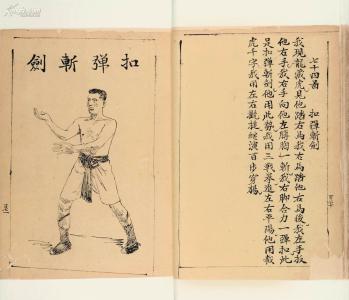 七十四啚　扣弹斬劍
我現龍藏虎見他踏右馬我踏他右馬後我左手扳
他右手我右手向他左膊胸一斬我右脚合力一弹扣此
是扣弹斬劍他用此勢我用三戰拳進左右平陽他用
虎千字我用左右觀提總演百步穿楊
扣弹斬劍